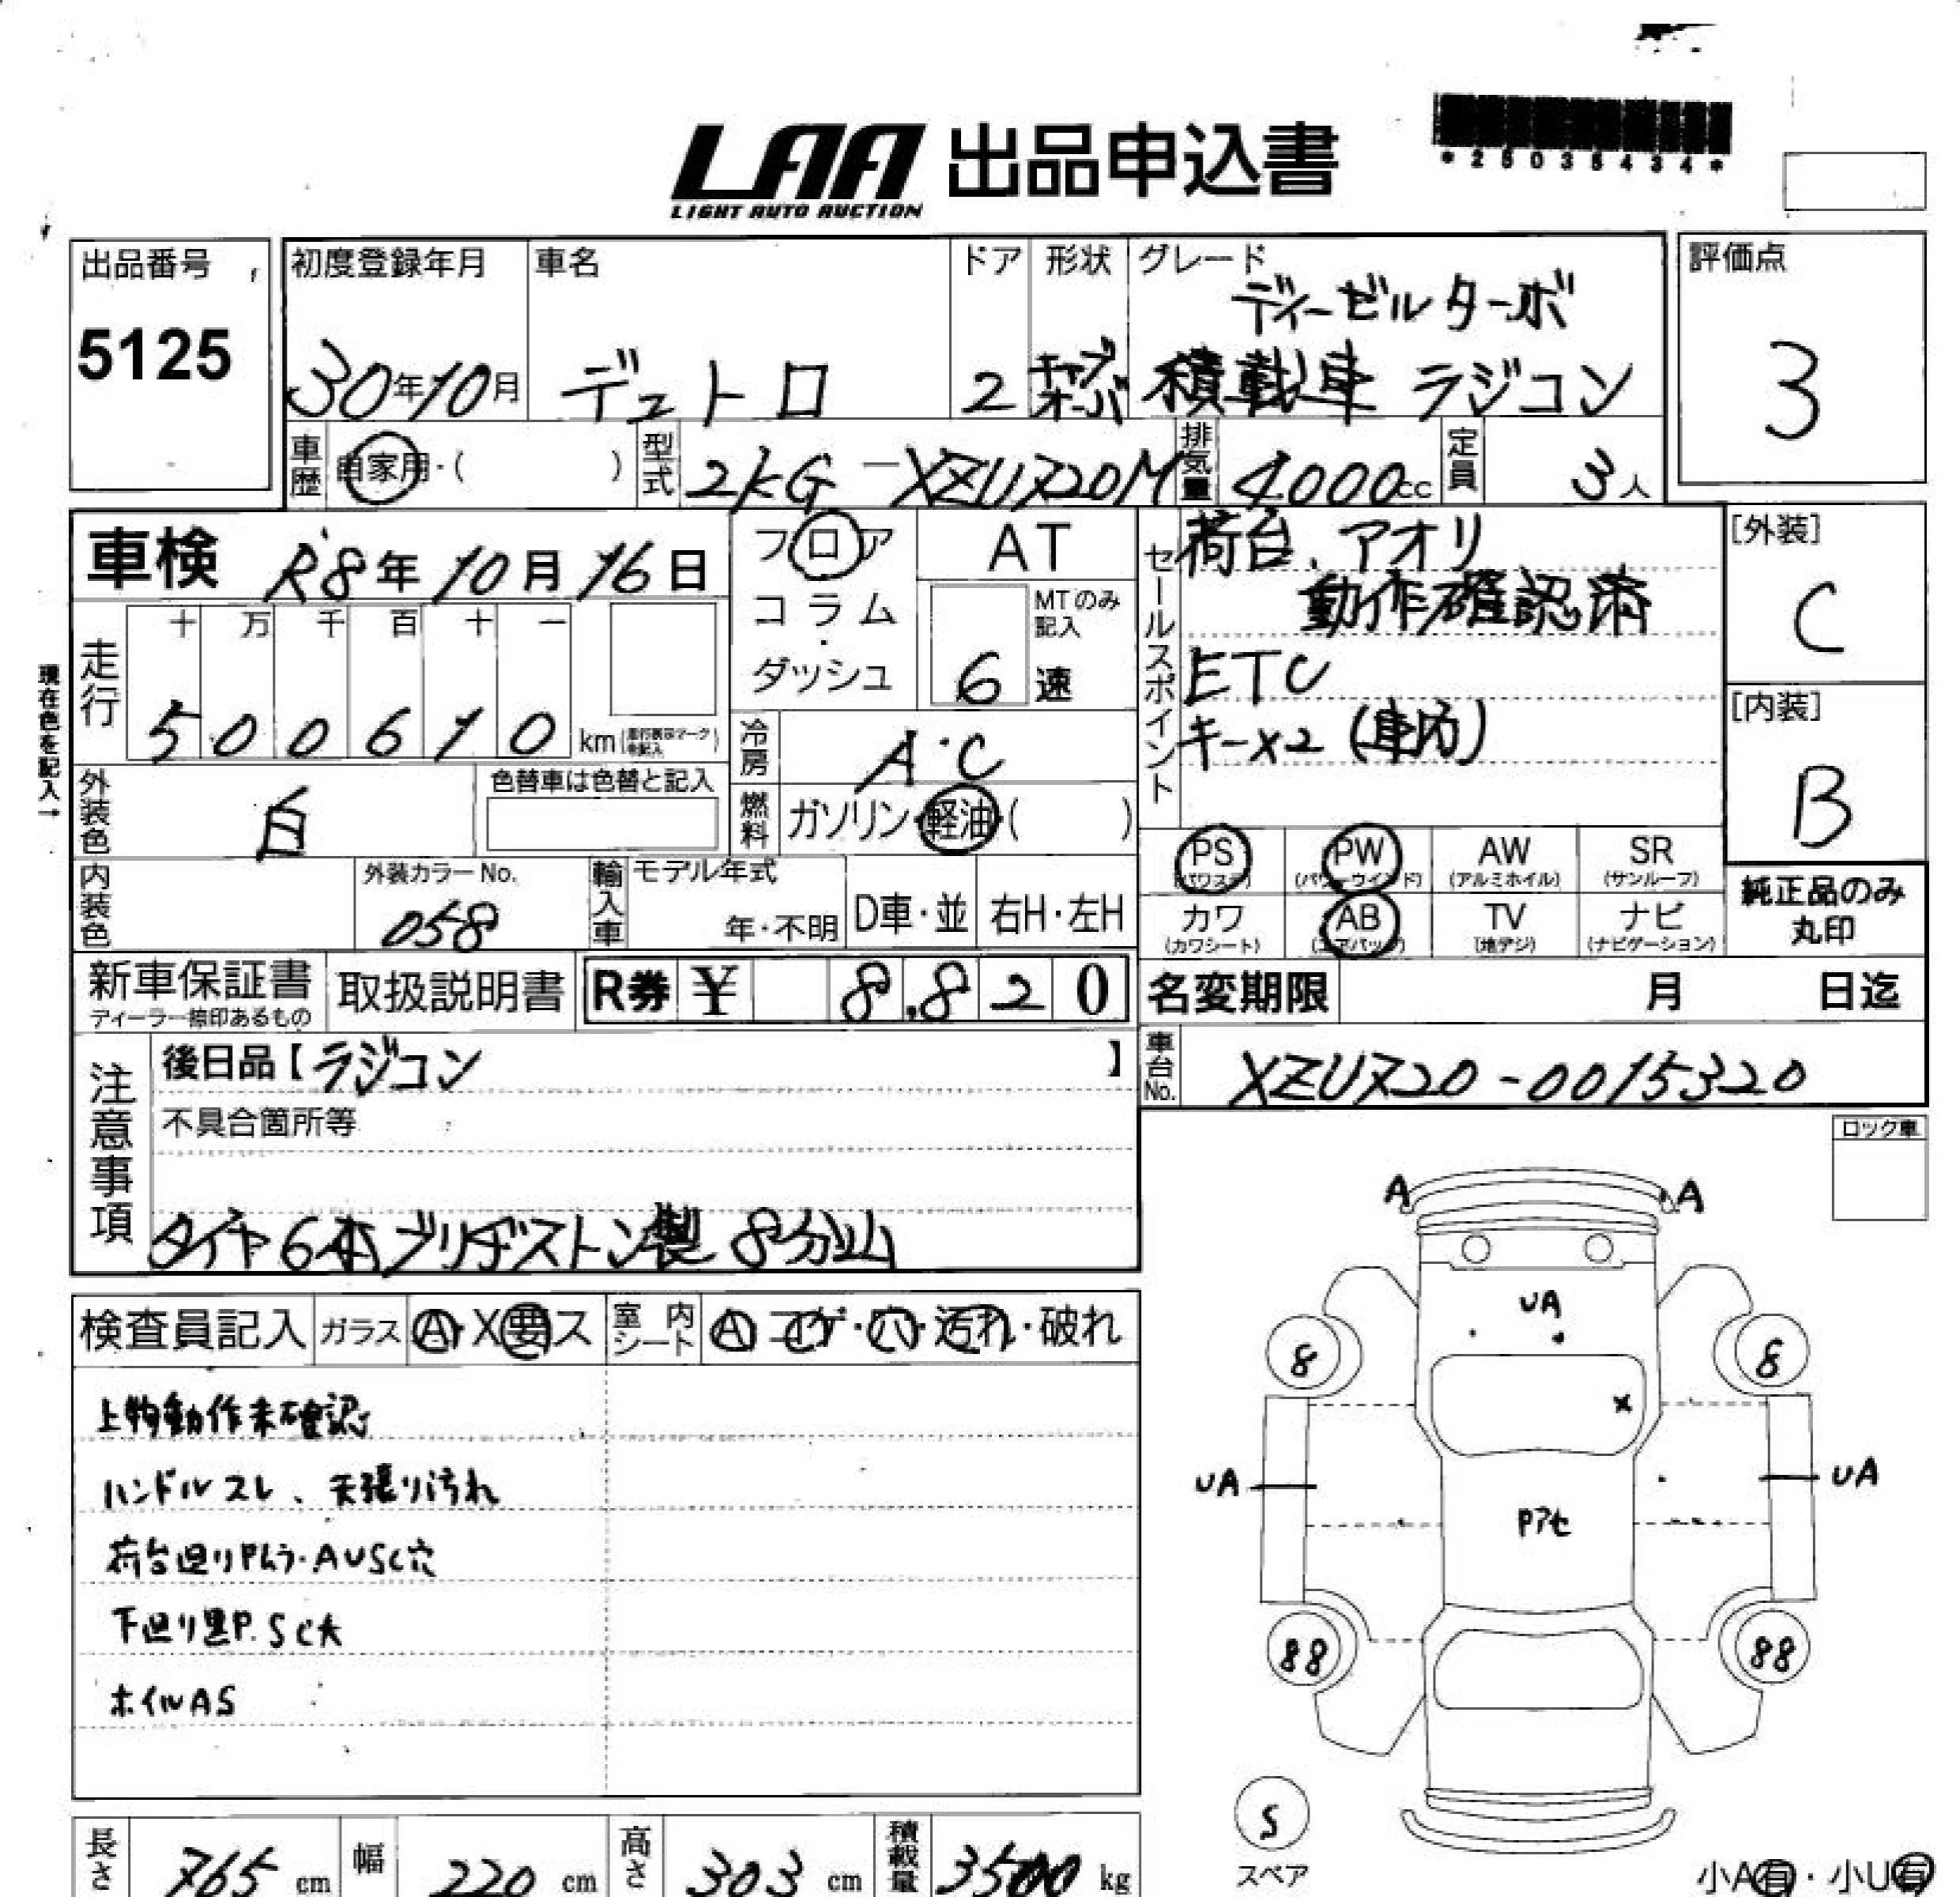 LAA 出品申込書
LIGHT AUTO AUCTION
*25035434*
出品番号
5125
初度登録年月
30年10月
車名
デュトロ
ドア
2
形状
グレード
ディーゼルターボ
積載車 ラジコン
評価点
3
車歴
自家用・( )
型式
2KG-XZU720M
排気量
4000cc
定員
3人
車検 R8年10月16日
フロア
コラム
・
ダッシュ
AT
MTのみ
記入
6速
セールスポイント
荷台、アオリ
動作確認済
ETC
キーx2 (車内)
[外装]
C
[内装]
B
現在色を記入→
走行
十 万 千 百 十 一
5 0 0 6 1 0 km
冷房
A・C
外装色
白
色替車は色替と記入
燃料
ガソリン・軽油・( )
PS
(パワステ)
PW
(パワーウインド)
AW
(アルミホイル)
SR
(サンルーフ)
内装色
外装カラーNo.
058
輸入車
モデル年式
年・不明
D車・並
右H・左H
カワ
(カワシート)
AB
(エアバック)
TV
(地デジ)
ナビ
(ナビゲーション)
純正品のみ
丸印
新車保証書
ディーラー捺印あるもの
取扱説明書
R券 ¥ 8,820
名変期限 月 日迄
注意事項
後日品【ラジコン 】
車台No.
XZU720-0015320
不具合箇所等
タイヤ6本ブリヂストン製 8分山
ロック車
検査員記入
ガラス
A・X要ス
室内シート
A コゲ・穴・汚れ・破れ
上物動作未確認
ハンドルスレ、天張り汚れ
荷台廻りPムラ・AUSC穴
下廻り黒P.SC大
ホイルAS
A A
UA
8 8
X
UA UA
Pアセ
88 88
S
スペア
小A有・小U有
長さ 765 cm
幅 220 cm
高さ 303 cm
積載量 3500 kg